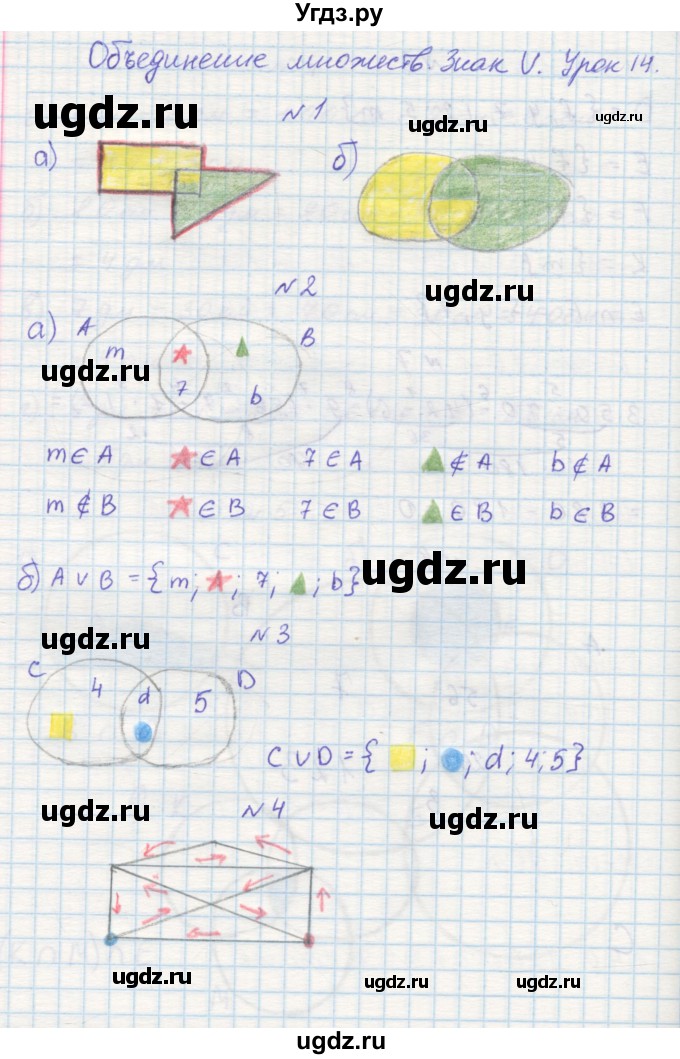 Угдз.ру
Объединение множеств. Знак U. Урок 14.
ugdz.ru ugdz.ru ugdz.ru
№1
а) б)
ugdz.ru
№2
а) A B
m 7 b
ugdz.ru
m ∈ A ★ ∈ A 7 ∈ A ▲ ∉ A b ∉ A
m ∉ B ★ ∈ B 7 ∈ B ▲ ∈ B b ∈ B
ugdz.ru
б) A ∪ B = {m; ★; 7; ▲; b}
ugdz.ru
№3
C D
4 d 5
C ∪ D = { ■; ●; d; 4; 5}
ugdz.ru ugdz.ru
№4
ugdz.ru ugdz.ru ugdz.ru
ugdz.ru